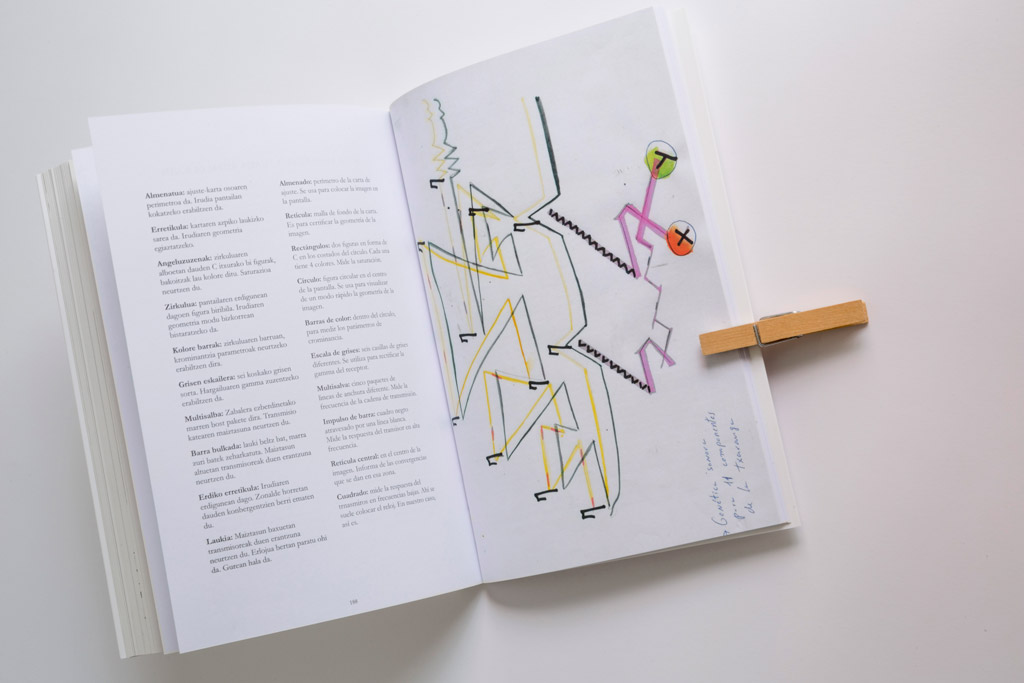 Almenatua: ajuste-karta osoaren
perimetroa da. Irudia pantailan
kokatzeko erabiltzen da.
Erretikula: kartaren azpiko laukizko
sarea da. Irudiaren geometria
egiaztatzeko.
Angeluzuzenak: zirkuluaren
alboetan dauden C itxurako bi figurak,
bakoitzak lau kolore ditu. Saturazioa
neurtzen du.
Zirkulua: pantailaren erdigunean
dagoen figura biribila. Irudiaren
geometria modu bizkorrean
bistaratzeko da.
Kolore barrak: zirkuluaren barruan,
krominantzia parametroak neurtzeko
erabiltzen dira.
Grisen eskailera: sei koskako grisen
sorta. Hargailuaren gamma zuzentzeko
erabiltzen da.
Multisalba: Zabalera ezberdinetako
marren bost pakete dira. Transmisio
katearen maiztasuna neurtzen du.
Barra bulkada: lauki beltz bat, marra
zuri batek zeharkatuta. Maiztasun
altuetan transmisoreak duen erantzuna
neurtzen du.
Erdiko erretikula: Irudiaren
erdigunean dago. Zonalde horretan
dauden konbergentzien berri ematen
du.
Laukia: Maiztasun baxuetan
transmisoreak duen erantzuna
neurtzen du. Erlojua bertan paratu ohi
da. Gurean hala da.
Almenado: perímetro de la carta de
ajuste. Se usa para colocar la imagen en
la pantalla.
Retícula: malla de fondo de la carta.
Es para certificar la geometría de la
imagen.
Rectángulos: dos figuras en forma de
C en los costados del círculo. Cada una
tiene 4 colores. Mide la saturación.
Círculo: figura circular en el centro
de la pantalla. Se usa para visualizar
de un modo rápido la geometría de la
imagen.
Barras de color: dentro del círculo,
para medir los parámetros de
crominancia.
Escala de grises: seis casillas de grises
diferentes. Se utiliza para rectificar la
gamma del receptor.
Multisalva: cinco paquetes de
líneas de anchura diferente. Mide la
frecuencia de la cadena de transmisión.
Impulso de barra: cuadro negro
atravesado por una línea blanca.
Mide la respuesta del transisor en alta
frecuencia.
Retícula central: en el centro de la
imagen. Informa de las convergencias
que se dan en esa zona.
Cuadrado: mide la respuesta del
transmisor en frecuencias bajas. Ahí se
suele colocar el reloj. En nuestro caso,
así es.
198
→ Genética sonora
para 11 compases
de la txaranga